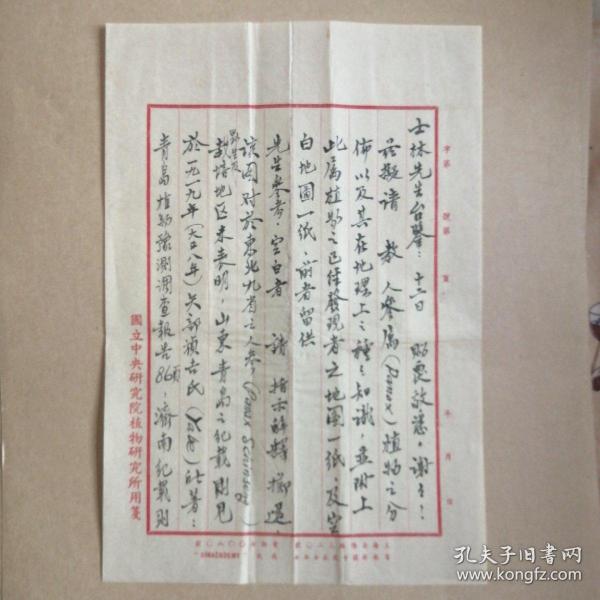 字第 號第 頁 年 月 日
士林先生台鑒：十二日 賜覆敬悉，謝々！
茲擬請 教人參属(Panax)植物之分
佈以及其在地理上之種々知識，並附上
此属植物之已經發現者之地圖一紙，及空
白地圖一紙，前者留供
先生參考，空白者 請指示解釋擲還
該圖對於東北九省之人參(Panax Schinseng)
野生及
栽培地区未表明，山東青島之紀載則見
於一九一九年(大正八年)矢部禎吉氏 所著：
青島植物豫測調查報告86頁，濟南紀載則
國立中央研究院植物研究所用箋
孔夫子旧书网
www.kongfz.com